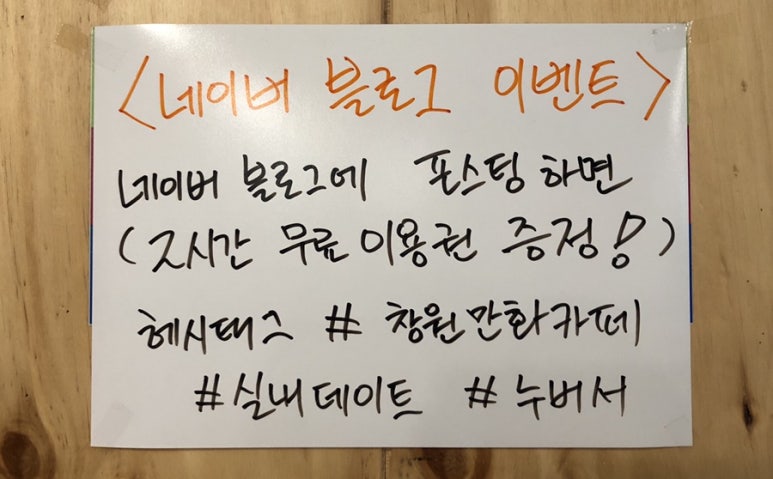 <네이버 블로그 이벤트>
네이버 블로그에 포스팅 하면
(2시간 무료 이용권 증정!)
헤시태그 # 창원만화카페
#실내데이트 # 누버서